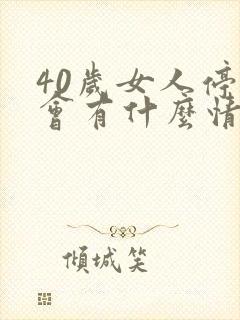 40歲女人停
會有什麼情
傾城笑